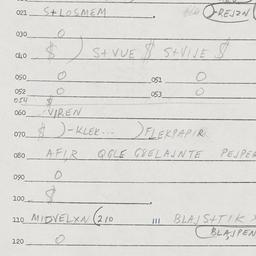 021 S+LOSMEM . REJZN
030 O
040 $ ) S+VUE $ S+VIJE $
050 O 051 O
052 O 053 O
054 $
060 VIREN
070 $ )-KLEK... )FLEKPAPIR
080 AFIR QGLE PEJPE
090 O
100 $ .
110 MIDVELXN (210 111 BLAJS+TIK
BLAJPEN
120 O